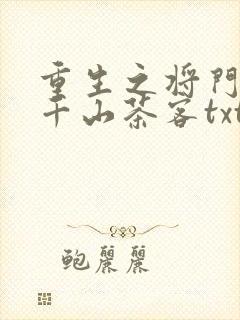 重生之将門
千山茶客txt
鲍麗麗